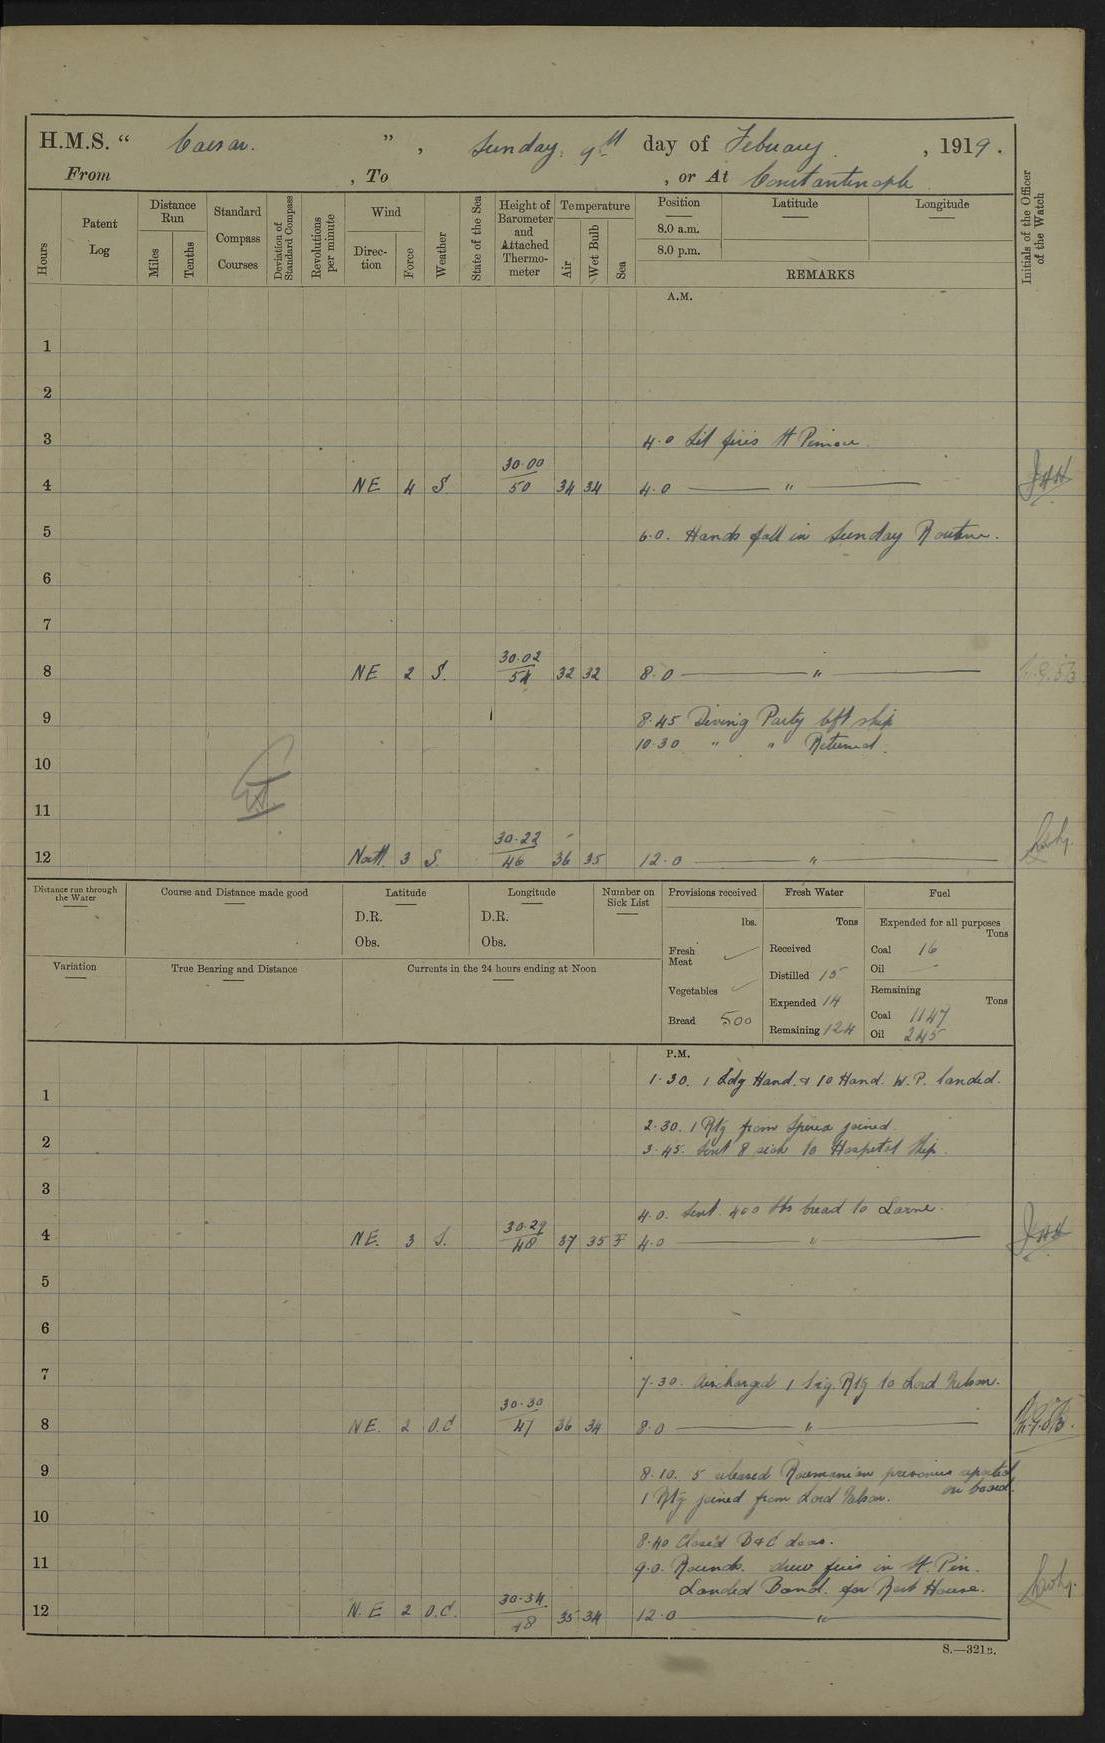 H.M.S. “ Caesar. ” , Sunday, 9th day of Febuary , 1919.
From , To , or At Constantinople
Hours
Patent Log
Distance Run
Miles
Tenths
Standard Compass Courses
Deviation of Standard Compass
Revolutions per minute
Wind
Direction
Force
Weather
State of the Sea
Height of Barometer and Attached Thermometer
Temperature
Air
Wet Bulb
Sea
Position Latitude Longitude
8.0 a.m.
8.0 p.m.
REMARKS
Initials of the Officer of the Watch
A.M.
1
2
3 4.0 Lit fires St Pinnace
4 NE 4 S. 30.00 50 34 34 4.0 "
5 6.0. Hands fall in Sunday Routine.
6
7
8 NE 2 S. 30.02 54 32 32 8.0 "
9 8.45 Diving Party left ship
10.30 " " Returned.
10
11
12 North 3 S. 30.22 46 36 35 12.0 "
Distance run through the Water
Course and Distance made good
Latitude
D.R.
Obs.
Longitude
D.R.
Obs.
Number on Sick List
Variation
True Bearing and Distance
Currents in the 24 hours ending at Noon
Provisions received
lbs.
Fresh Meat
Vegetables
Bread 500
Fresh Water
Tons
Received
Distilled 15
Expended 14
Remaining 124
Fuel
Expended for all purposes
Tons
Coal 16
Oil
Remaining
Tons
Coal 1147
Oil 245
P.M.
1.30. 1 Ldg Hand. & 10 Hand. W.P. landed.
1
2.30. 1 Rtg from joined.
2 3.45. Sent 8 sick to Hospital Ship.
3
4.0. Sent 400 lbs bread to Larne.
4 NE. 3 S. 30.29 48 37 35 4.0 "
5
6
7 7.30. Discharged 1 Sig. Rtg to Lord Nelson.
8 NE. 2 O.C 30.30 47 36 34 8.0 "
9 8.10. 5 released Roumanian prisoners reported on board.
1 Rtg joined from Lord Nelson.
10
8.40 Closed B & C doors.
11 9.0. Rounds. drew fires in St. Pin.
Landed Band. for Rest House.
12 N.E 2 O.C. 30.34 48 35 34 12.0 "
S.—321B.